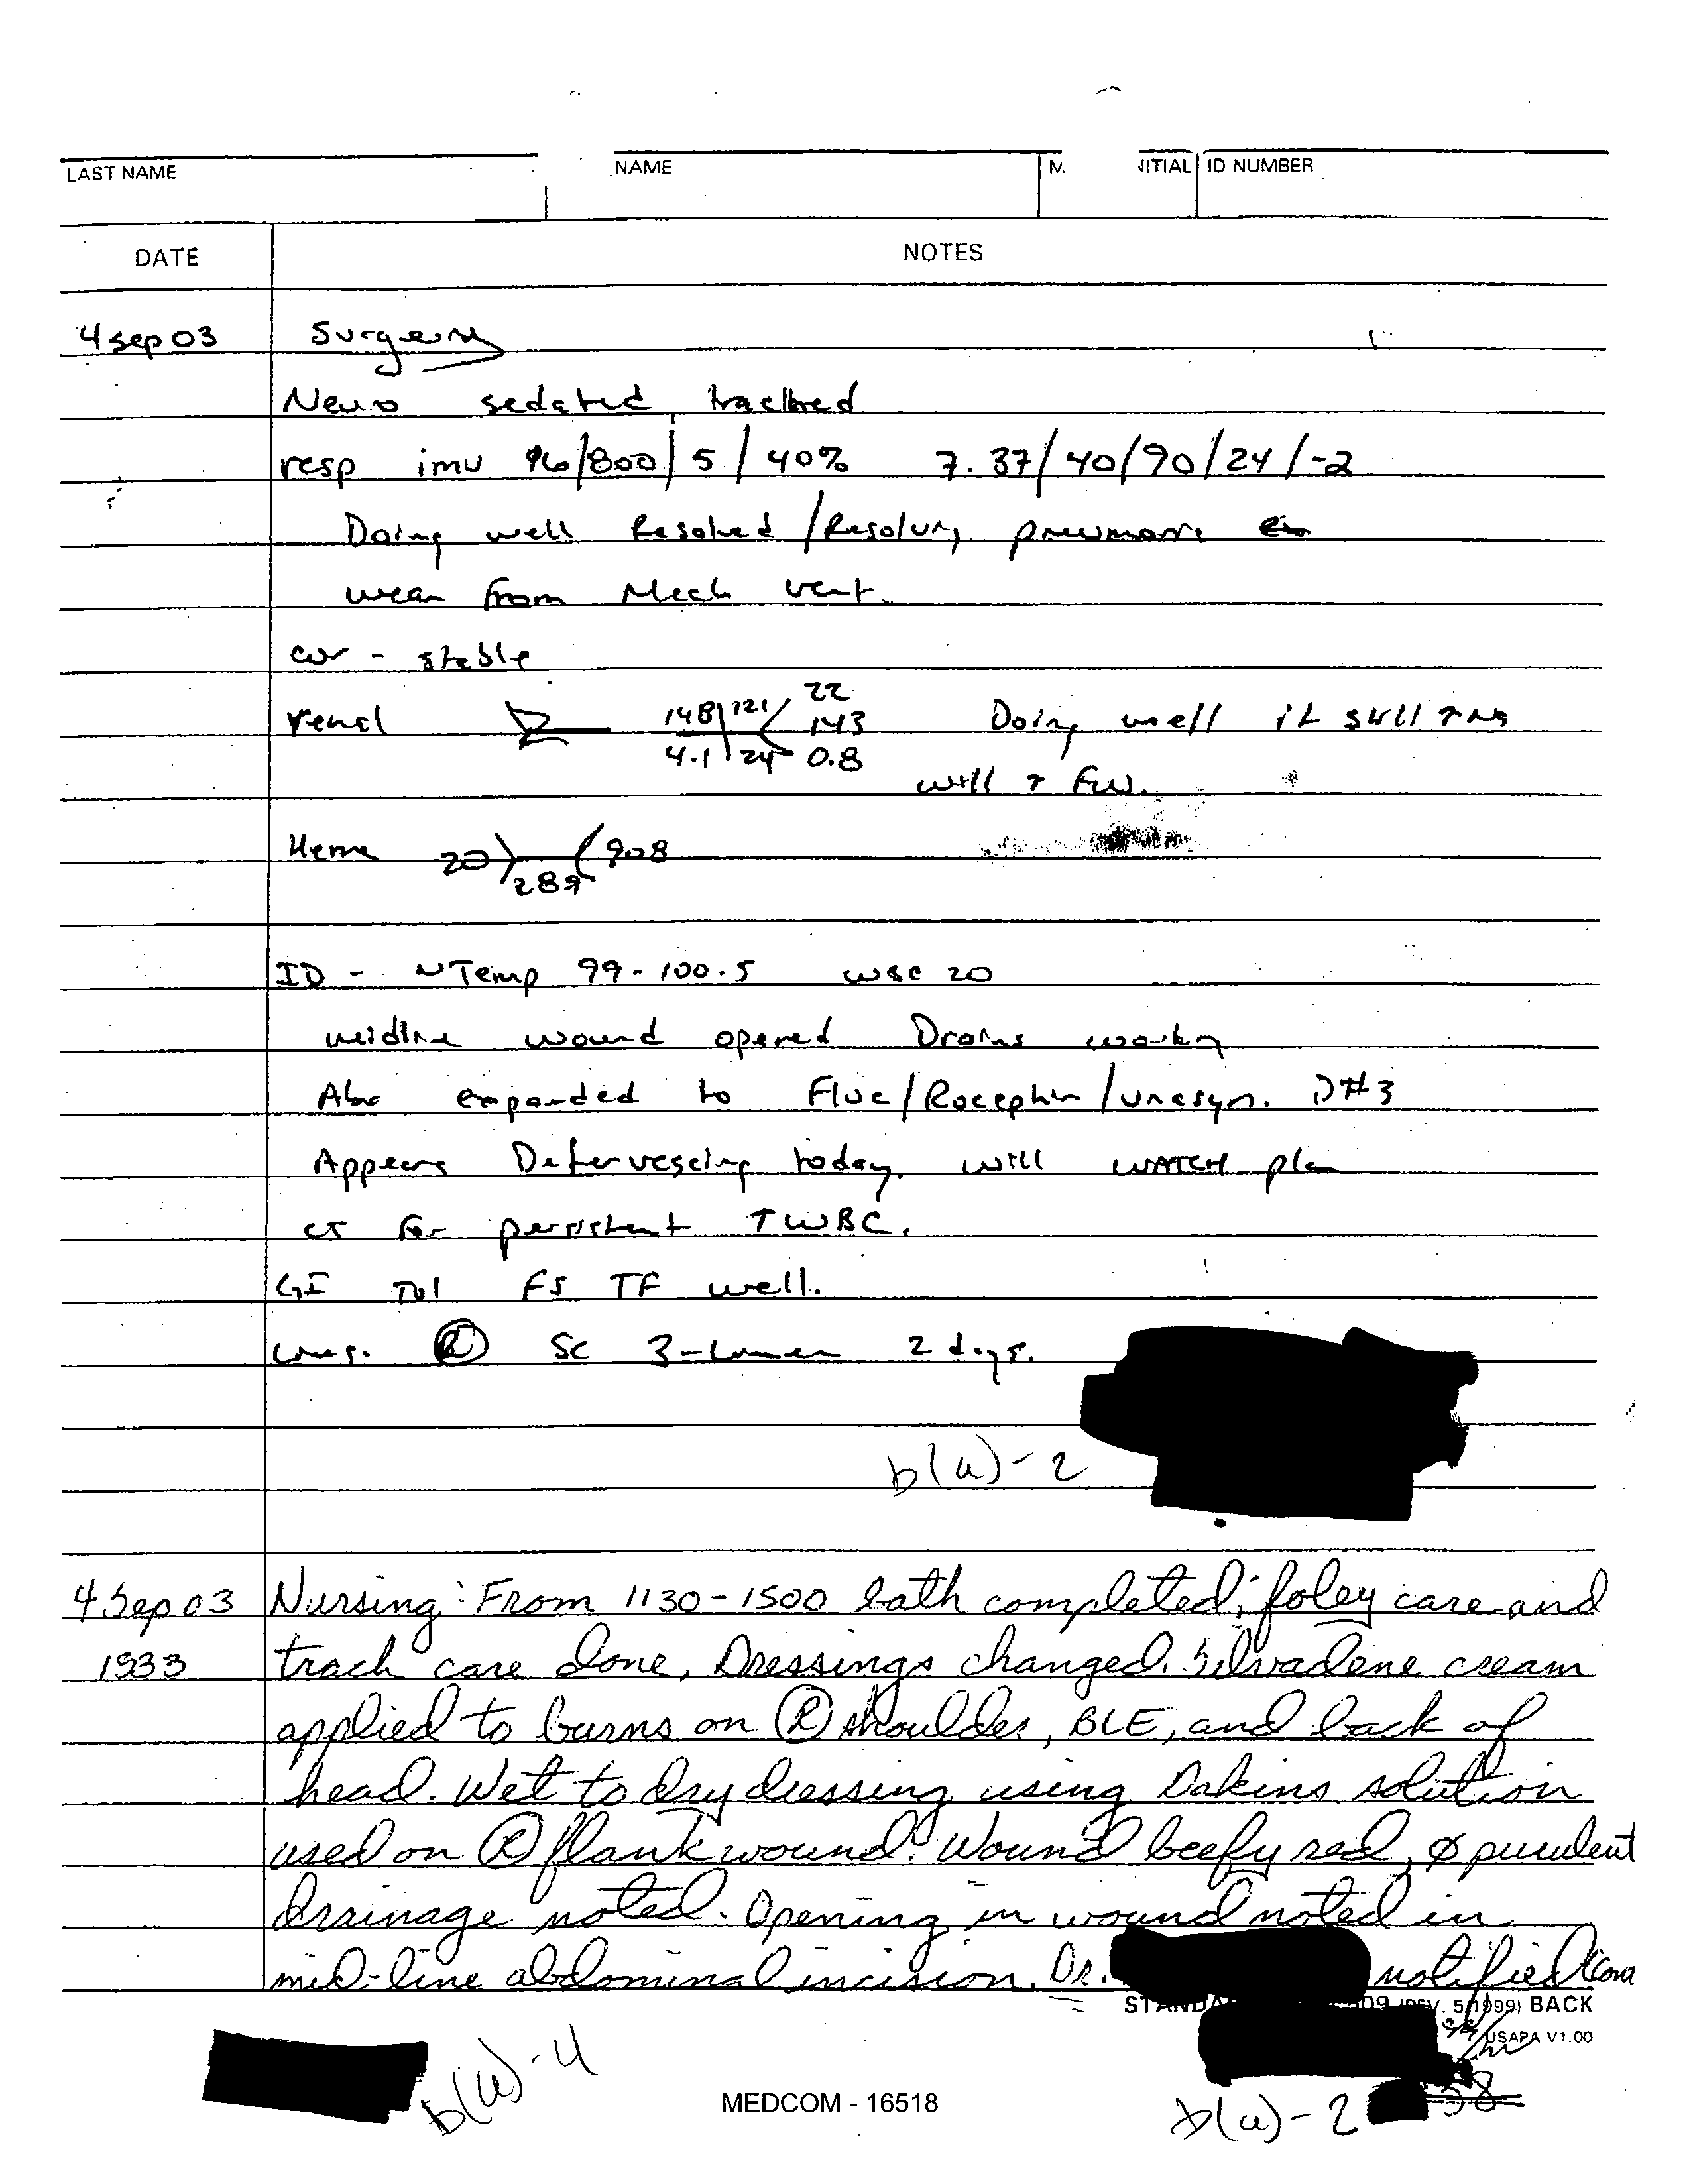 LAST NAME NAME M. ITIAL ID NUMBER
DATE NOTES
4 Sep 03 Surgery
Neuro sedated, trached
resp imv /800/5/40% 7.37/40/90/24/-2
Doing well Resolved/Resolving
wean from Mech vent.
cor - stable
renal 148 121 22 143 Doing well it still ↑Na
4.1 24 0.8
will ↑ FW.
Heme 20 289 908
ID - Temp 99-100.5 WBC 20
midline wound opened Drains
expanded to Fluc/Rocephin/Unasyn. D#3
Appears Defervescing today. will WATCH plan
CT for persistent ↑WBC.
GI Tol FS TF well.
Lines. Ⓡ SC 3-Lumen 2 days.
b(6)-2
4 Sep 03 Nursing: From 1130-1500 bath completed; foley care and
1933 trach care done. Dressings changed. Silvadene cream
applied to burns on Ⓡ shoulder, BLE, and back of
head. Wet to dry dressing using Dakins solution
used on Ⓡ flank wound. Wound beefy red, ø purulent
drainage noted. Opening in wound noted in
mid-line abdominal incision. Dr. notified
STANDA 509 (REV. 5/1999) BACK
USAPA V1.00
b(6)-4
MEDCOM - 16518
b(6)-2
58